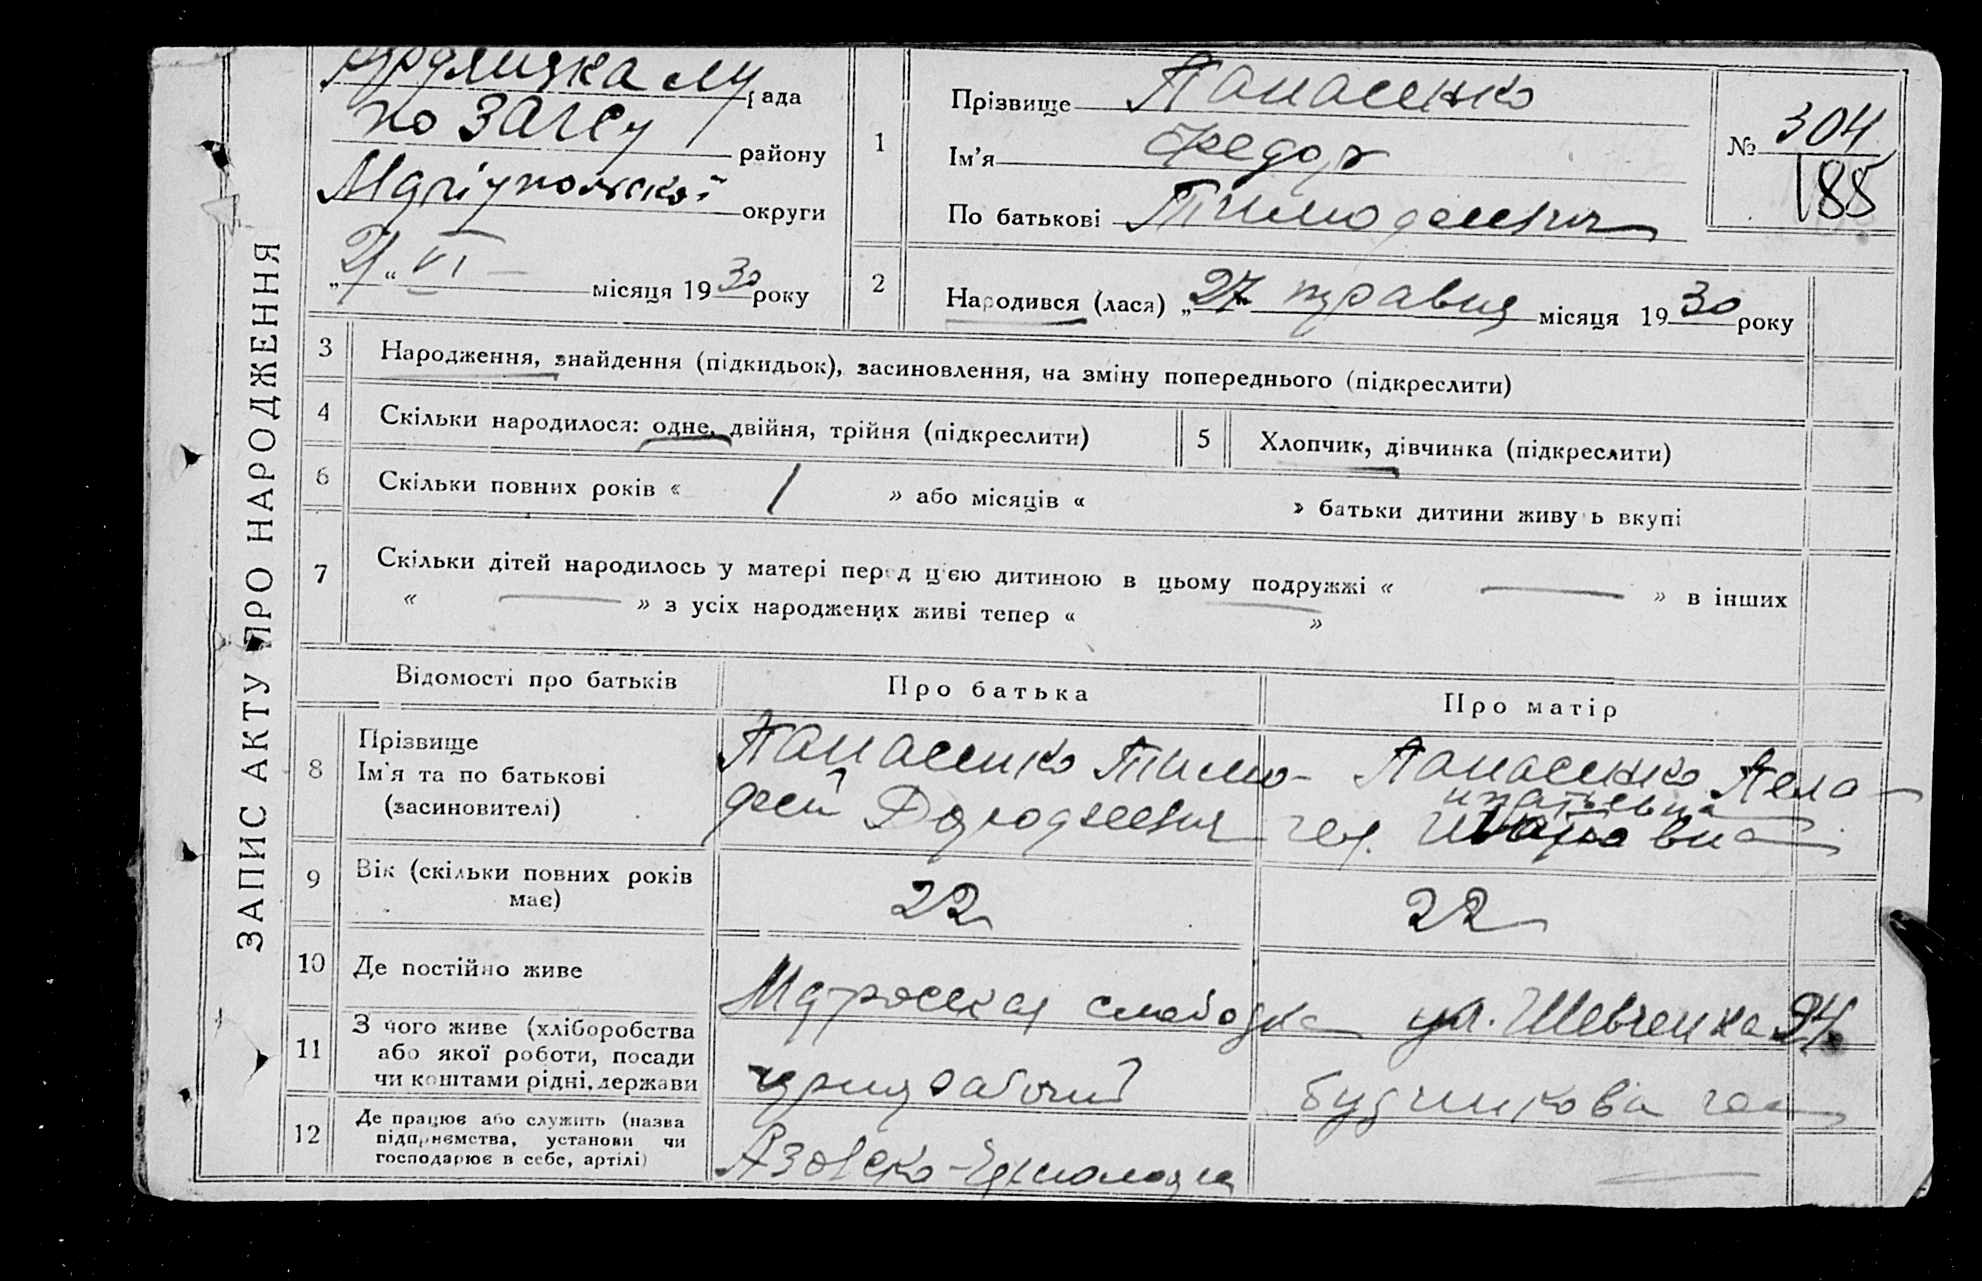 ЗАПИС АКТУ ПРО НАРОДЖЕННЯ
рада
по ЗАГСу району
Маріупольской округи
„2“ VI місяця 1930 року
1
Прізвище Панасенко
Ім'я Федор
По батькові Тимофеевич
№ 304
185
2
Народився (лася) „27 травня місяця 1930 року
3 Народження, знайдення (підкидьок), засиновлення, на зміну попереднього (підкреслити)
4 Скільки народилося: одне, двійня, трійня (підкреслити)
5 Хлопчик, дівчинка (підкреслити)
6 Скільки повних років « 1 » або місяців « » батьки дитини живу ь вкупі
7 Скільки дітей народилось у матері перед цією дитиною в цьому подружжі « — » в інших
« — » з усіх народжених живі тепер « — »
Відомості про батьків Про батька Про матір
8
Прізвище
Ім'я та по батькові
(засиновителі)
Панасенко Тимо-
фей Дорофеевич
Панасенко Пела-
игнатьевна
гея.
9 Вік (скільки повних років
має)
22
22
10 Де постійно живе
Матросская слободка ул. Шевченка 94
11 З чого живе (хліборобства
або якої роботи, посади
чи коштами рідні, держави
чорнорабочий
12 Де працює або служить (назва
підприємства, установи чи
господарює в себе, артілі)
Азовско-Черноморья